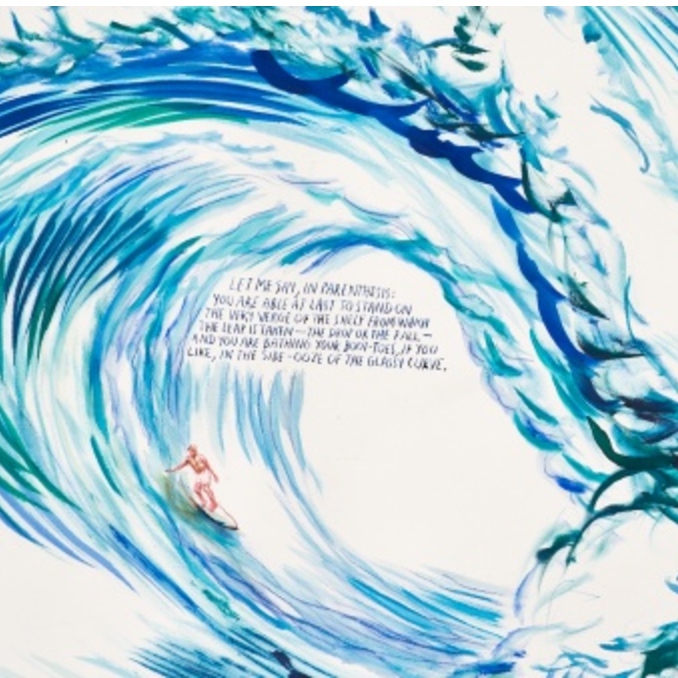 LET ME SAY, IN PARENTHESIS:
YOU ARE ABLE AT LAST TO STAND ON
THE VERY VERGE OF THE SHELF FROM WHICH
THE LEAP IS TAKEN — THE DROP OR THE FALL —
AND YOU ARE BATHING YOUR BOOT-TOES, IF YOU
LIKE, IN THE SIDE-OOZE OF THE GLASSY CURVE.